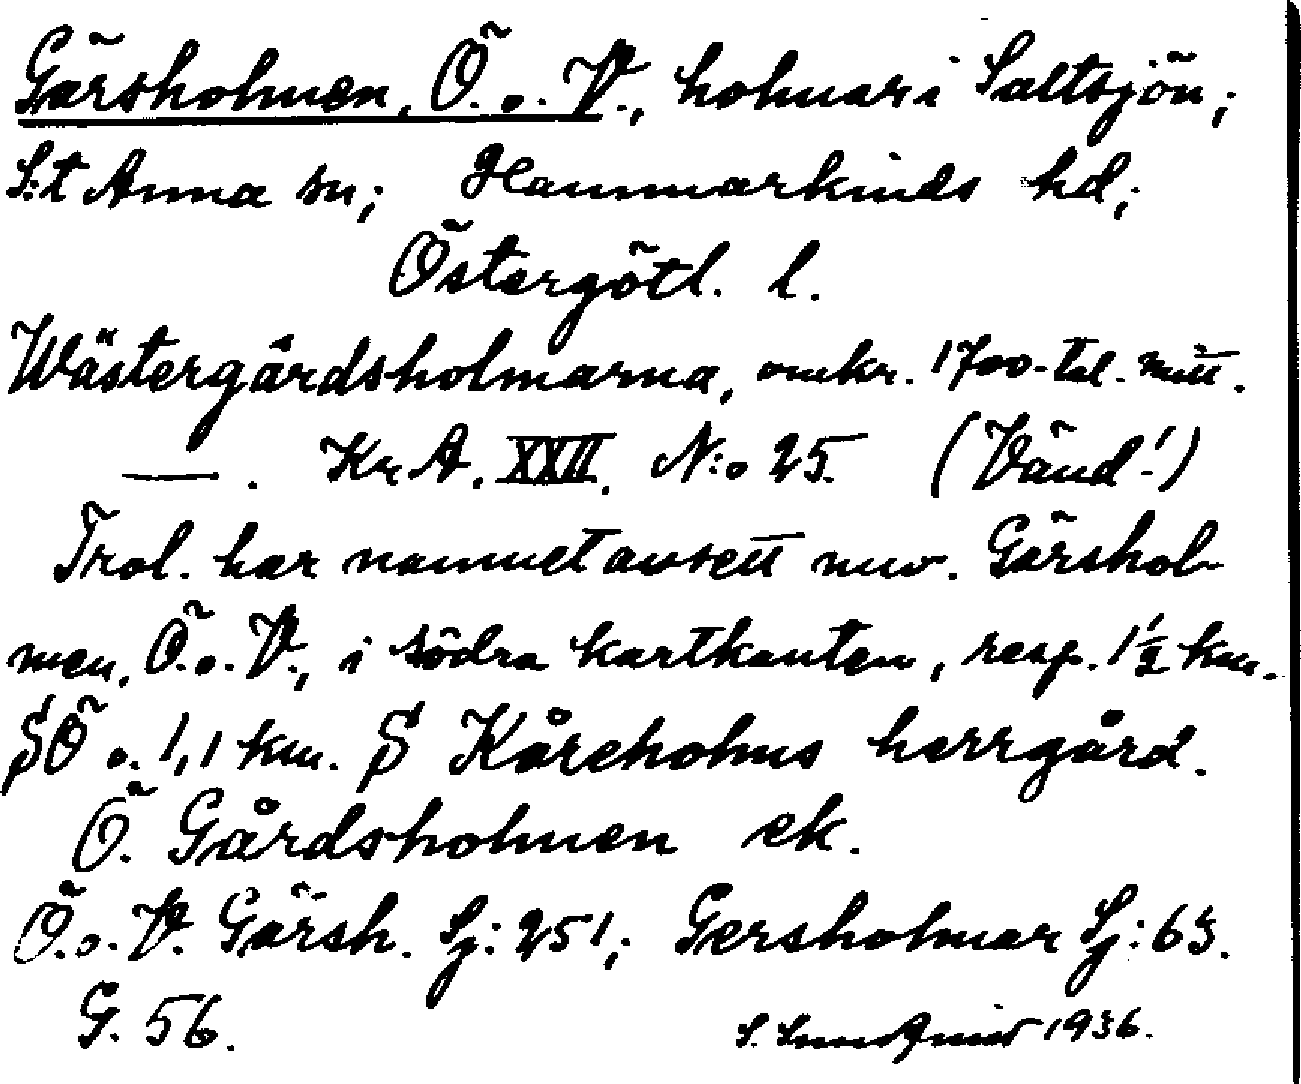 Gärsholmen, Ö. o. V., holmar i Saltsjön;
S:t Anna sn; Hammarkinds hd;
Östergötl. l.
Wästergårdsholmarna, omkr. 1700-tal. mitt.
—. Kr. A. XXII. N:o 25. (Vänd!)
Trol. har namnet avsett nuv. Gärshol-
men, Ö. o. V., i södra kartkanten, resp. 1½ km.
SÖ o. 1,1 km. S Kåreholms herrgård.
Ö. Gårdsholmen ek.
Ö. o. V. Gärsh. Sj: 251; Gersholmar Sj: 63.
G. 56.
S. 1936.